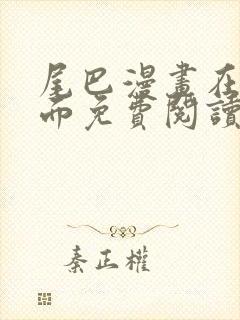 尾巴漫畫在
而免費閱讀
秦正權